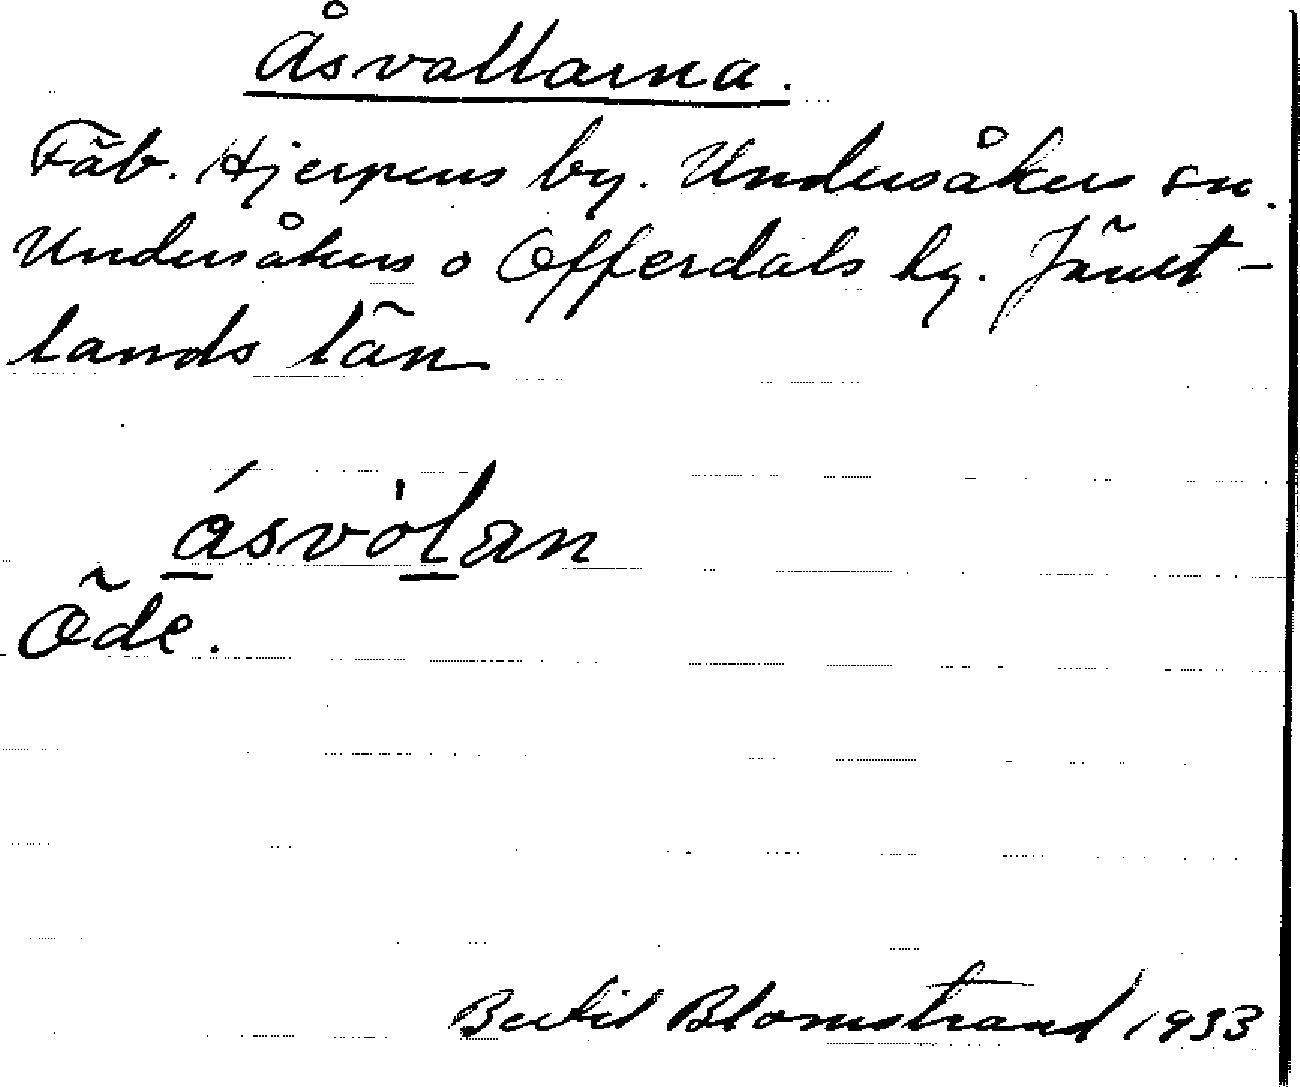 Åsvallarna.
Fäb. Hjerpens by. Undersåkers sn.
Undersåkers o Offerdals hg. Jämt-
lands län
ásvòlan
Öde.
Bertil Blomstrand 1933